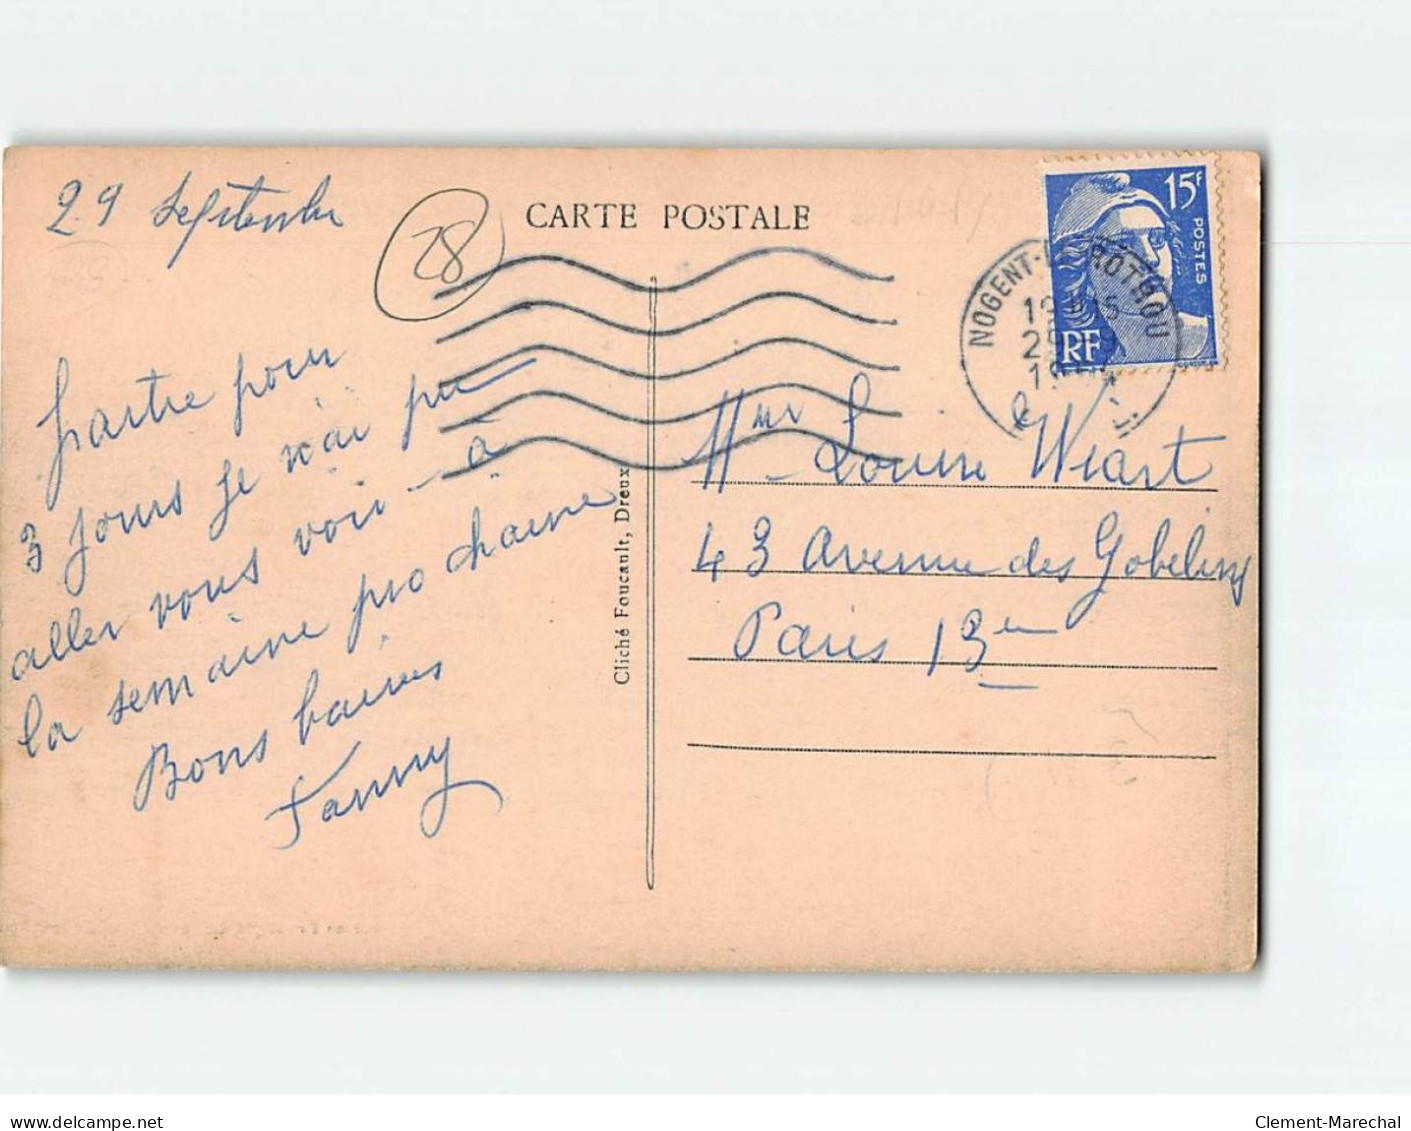 29 septembre
28
CARTE POSTALE
15F
POSTES
RF
NOGENT-LE-ROTROU
partie pour
3 jours je n'ai pu
aller vous voir - à
la semaine prochaine
Bons baisers
Fanny
Cliché Foucault, Dreux
Mme Louise Wiart
43 Avenue des Gobelins
Paris 13em
delcampe.net
Clement-Marechal